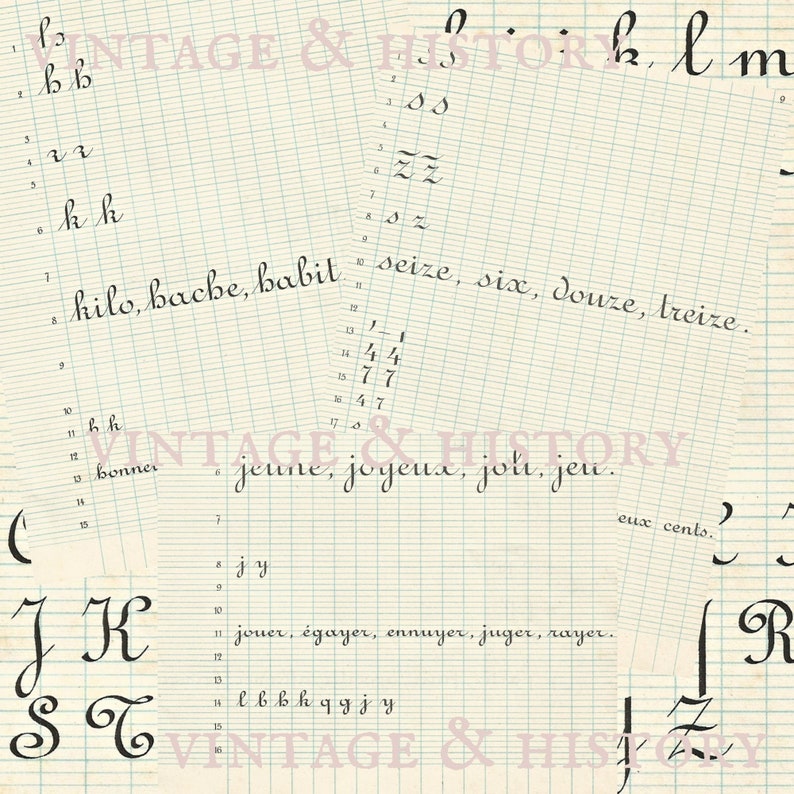 VINTAGE & HISTORY
1 h
2 h h
3
4 r r
5
6 k k
7
8 kilo, hache, habit
9
10
11 h k
12
13 bonnet
14
15
h i j k, l m
1 s s
2
3 s s
4
5
6 z z
7
8 s z
9
10 seize, six, douze, treize.
11
12
13
14 4 4
15 7 7
16 4 7
17 s
VINTAGE & HISTORY
6 jeune, joyeux, joli, jeu.
7
8 j y
9
10
11 jouer, égayer, ennuyer, juger, rayer.
12
13
14 l b h k q g j y
15
16
eux cents.
9
J K
S T
R
Z
VINTAGE & HISTORY